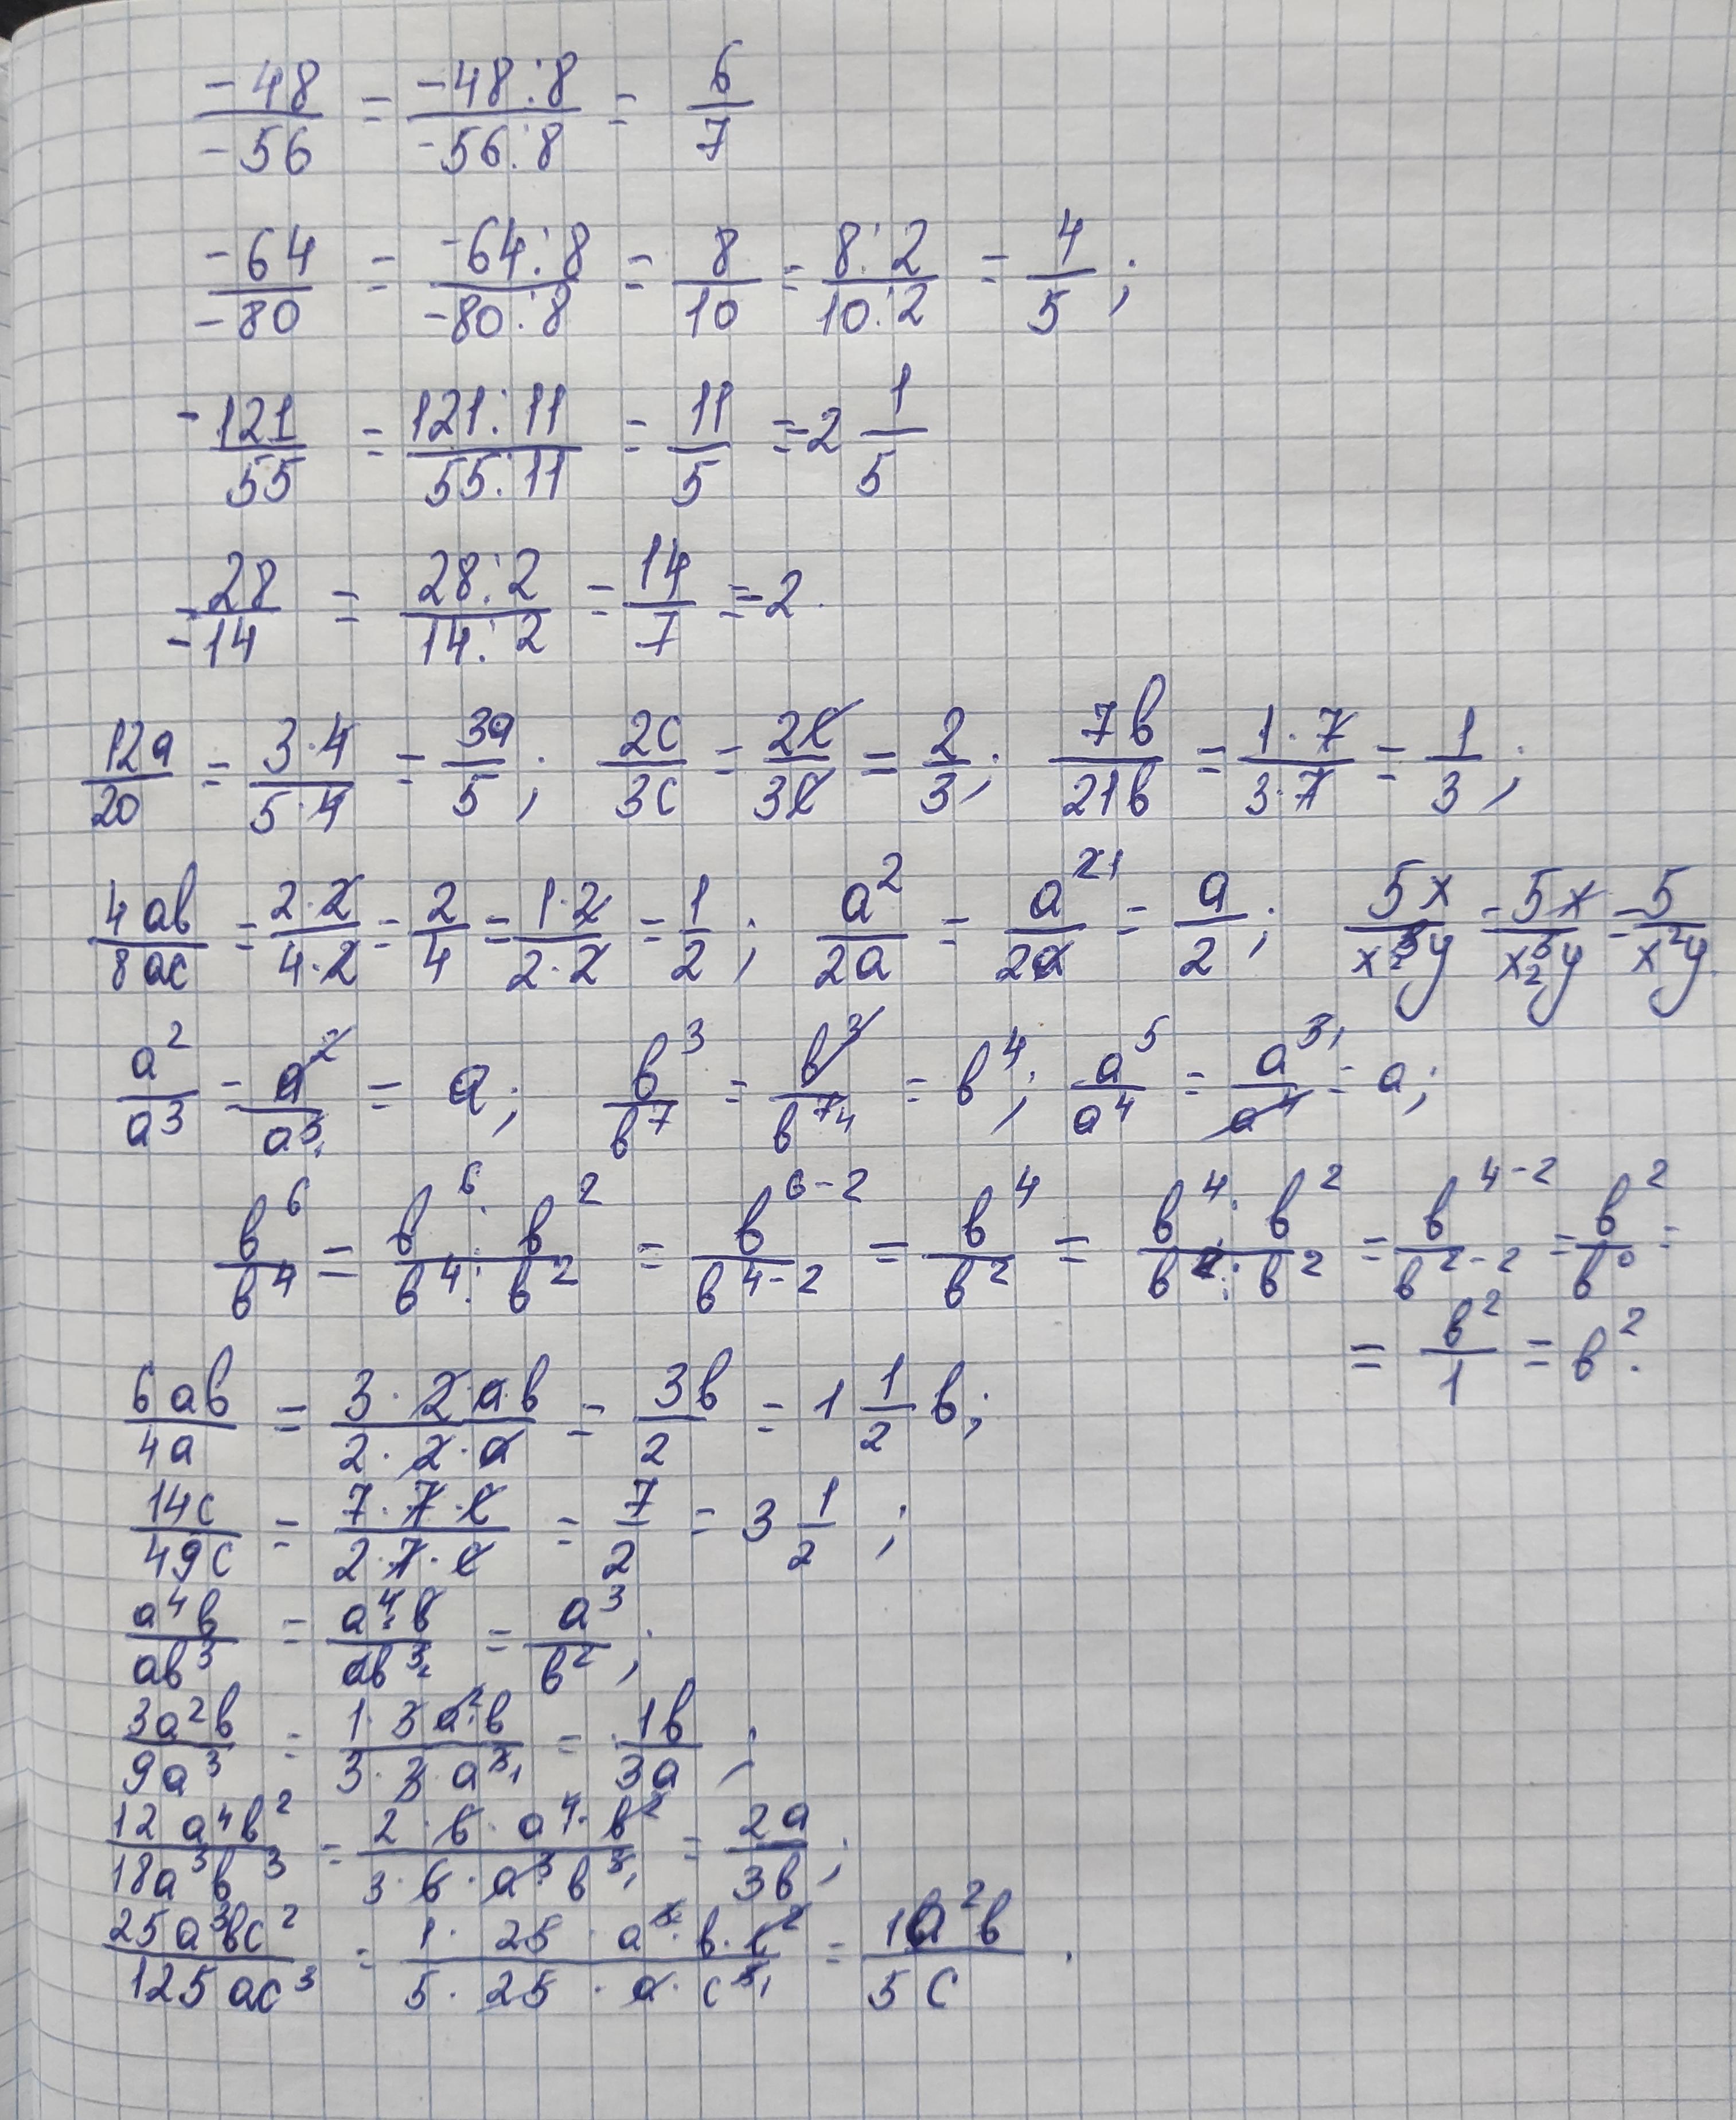 -48/-56 = -48:8/-56:8 = 6/7
-64/-80 = -64:8/-80:8 = 8/10 = 8:2/10:2 = 4/5;
-121/55 = 121:11/55:11 = 11/5 = -2 1/5
-28/-14 = 28:2/14:2 = 14/7 = -2.
12a/20 = 3·4/5·4 = 3a/5; 2c/3c = 2c/3c = 2/3; 7в/21в = 1·7/3·7 = 1/3;
4aв/8ac = 2·2/4·2 = 2/4 = 1·2/2·2 = 1/2; a²/2a = a²¹/2a = a/2; 5x/x³y = 5x/x³₂y = 5/x²y
a²/a³ = a²/a³₁ = a; в³/в⁷ = в³/в⁷₄ = в⁴; a⁵/a⁴ = a⁵₁/a⁴ = a;
в⁶/в⁴ = в⁶:в²/в⁴:в² = в⁶⁻²/в⁴⁻² = в⁴/в² = в⁴:в²/в²:в² = в⁴⁻²/в²⁻² = в²/в⁰ =
= в²/1 = в².
6aв/4a = 3·2·aв/2·2·a = 3в/2 = 1 1/2 в;
14c/49c = 7·7·c/2·7·c = 7/2 = 3 1/2;
a⁴в/aв³ = a⁴·в/aв³₂ = a³/в²;
3a²в/9a³ = 1·3·a²·в/3·3·a³₁ = 1в/3a;
12a⁴в²/18a³в³ = 2·6·a⁴·в²/3·6·a³в³₁ = 2a/3в;
25a³вc²/125ac³ = 1·25·a³₂·в·c²/5·25·a·c³₁ = 1a²в/5c.